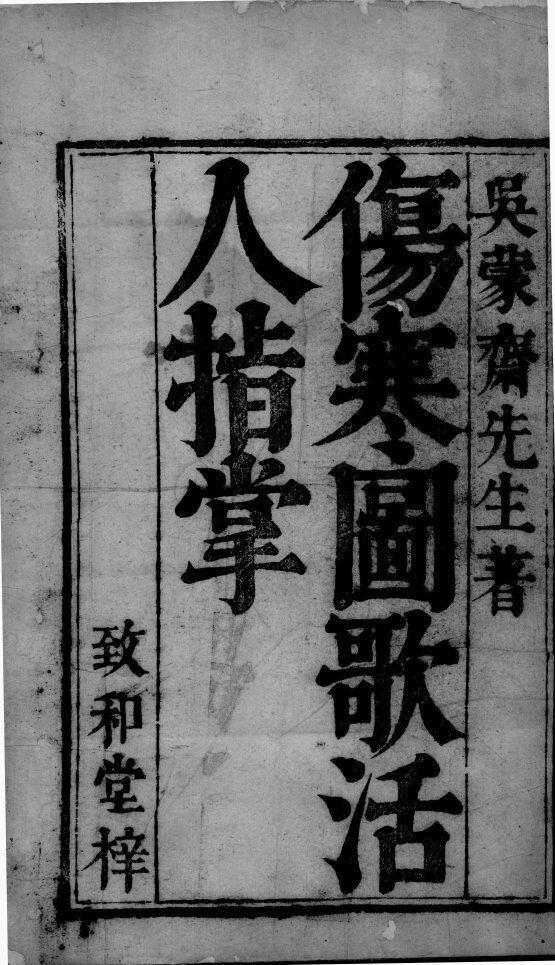 吳蒙齋先生著
傷寒圖歌活
人指掌
致和堂梓